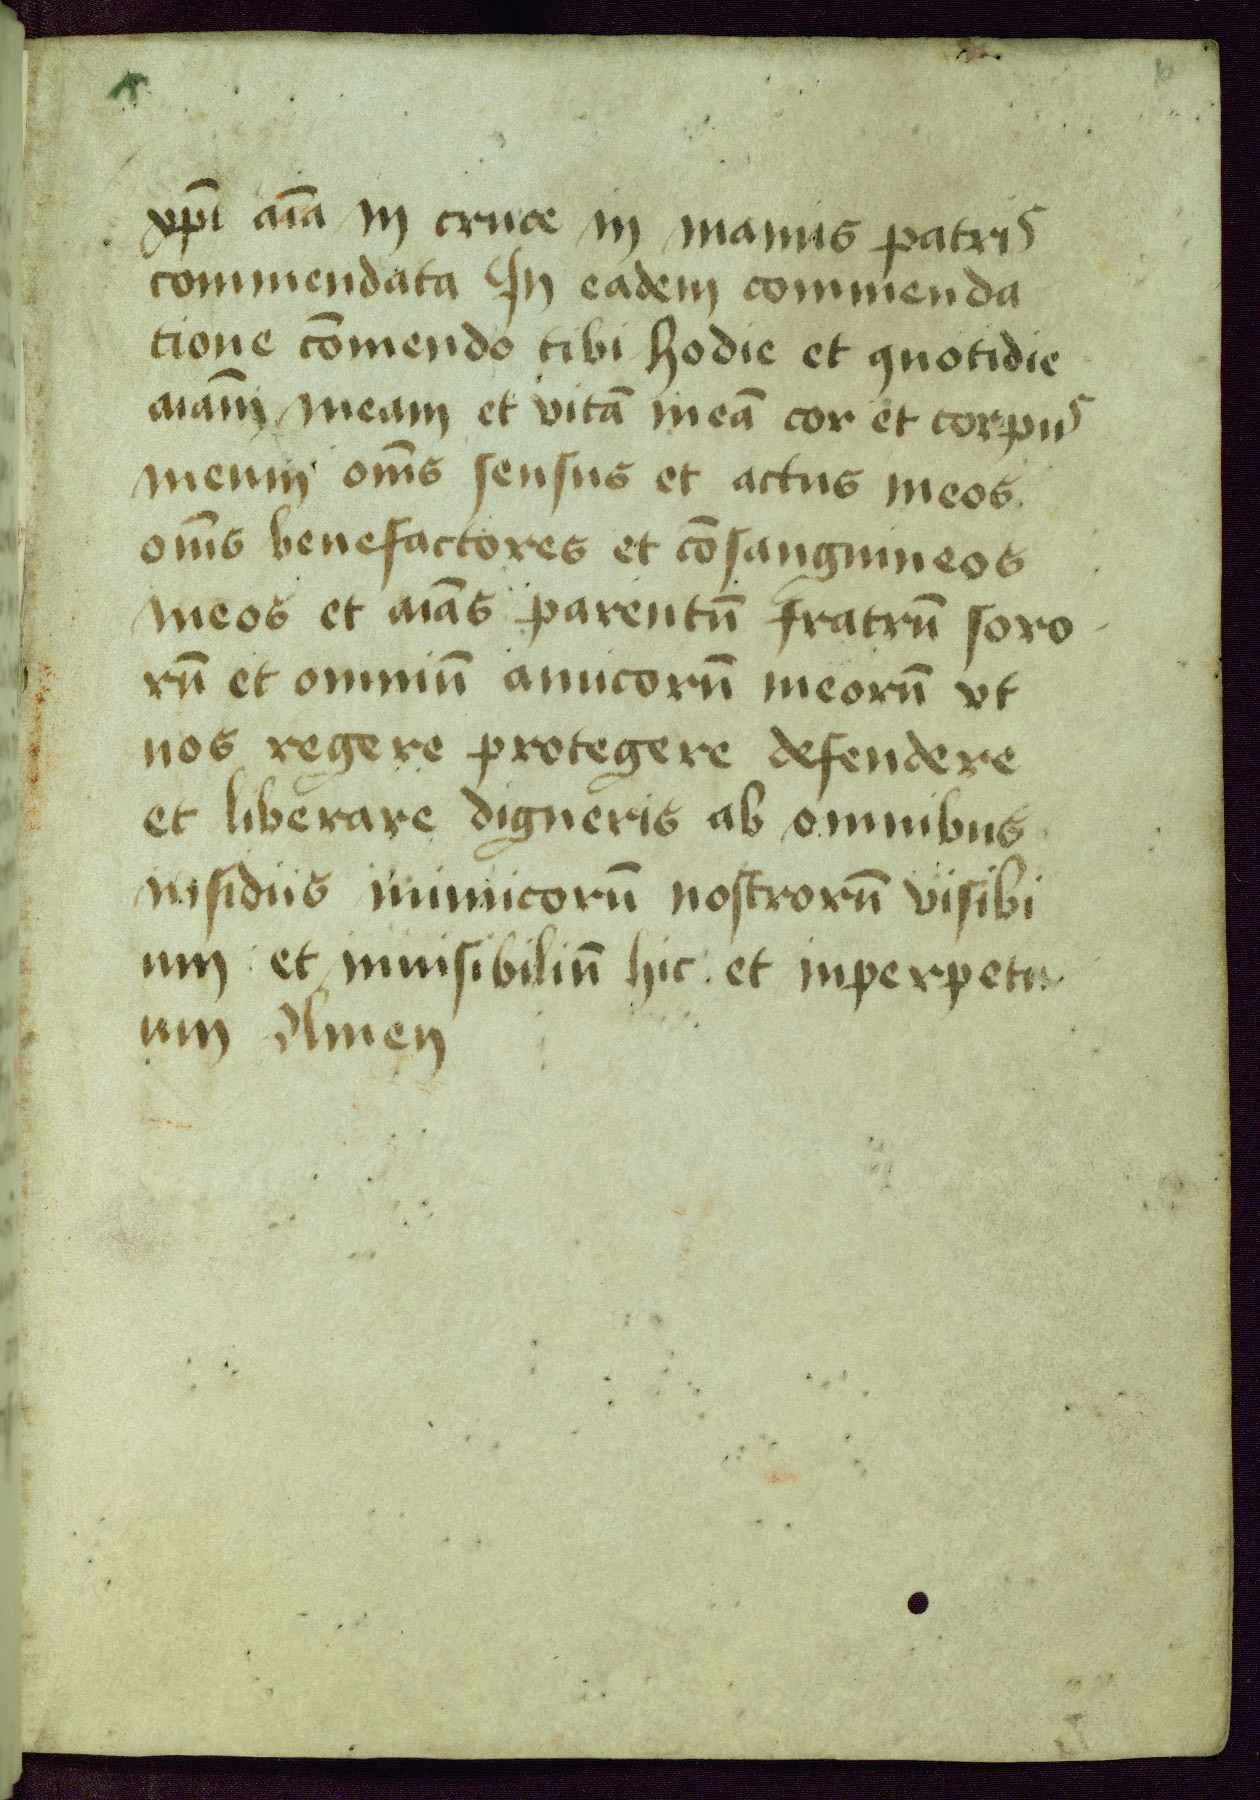 xpī aīa in cruce in manus patris
commendata In eadem commenda
tione cōmendo tibi hodie et quotidie
aiām meam et vitā meā cor et corpus
meum om̄s sensus et actus meos
om̄s benefactores et cōsanguineos
meos et aiās parentū fratrū soro
rū et omniū amicorū meorū vt
nos regere protegere defendere
et liberare digneris ab omnibus
insidiis inimicorū nostrorū visibi
um et inuisibiliū hic et inperpetu
um Amen